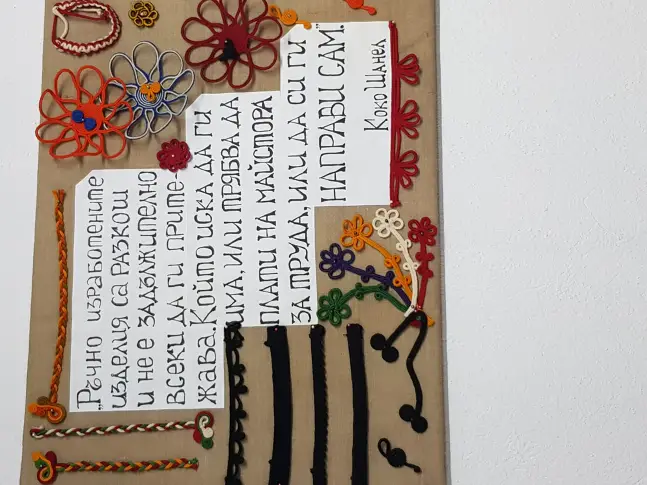 „Ръчно изработените
изделия са разкош
и не е задължително
всеки да ги прите-
жава. Който иска да ги
има, или трябва да
плати на майстора
за труда, или да си ги
направи сам."
Коко Шанел